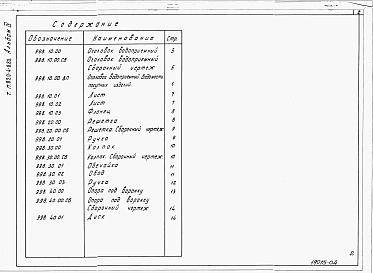 Содержание
Обозначение Наименование Стр.
998.10.00 Оголовок водоприемный 3
998.10.00.СБ Оголовок водоприемный
Сборочный чертеж 5
998.10.00 ВП Оголовок водоприемный Ведомость
покупных изделий
998.10.01 Лист 7
998.10.02 Лист 7
998.10.03 Фланец 8
998.20.00 Решетка 8
998.20.00.СБ Решетка. Сборочный чертеж 9
998.20.01 Ручка 9
998.30.00 Колпак 10
998.30.00.СБ Колпак Сборочный чертеж 10
998.30.01 Обечайка 11
998.30.02 Обод 11
998.30.03 Ручка 12
998.40.00 Опора под воронку 13
998.40.00.СБ Опора под воронку
Сборочный чертеж 14
998.40.01 Диск 14
19015-04